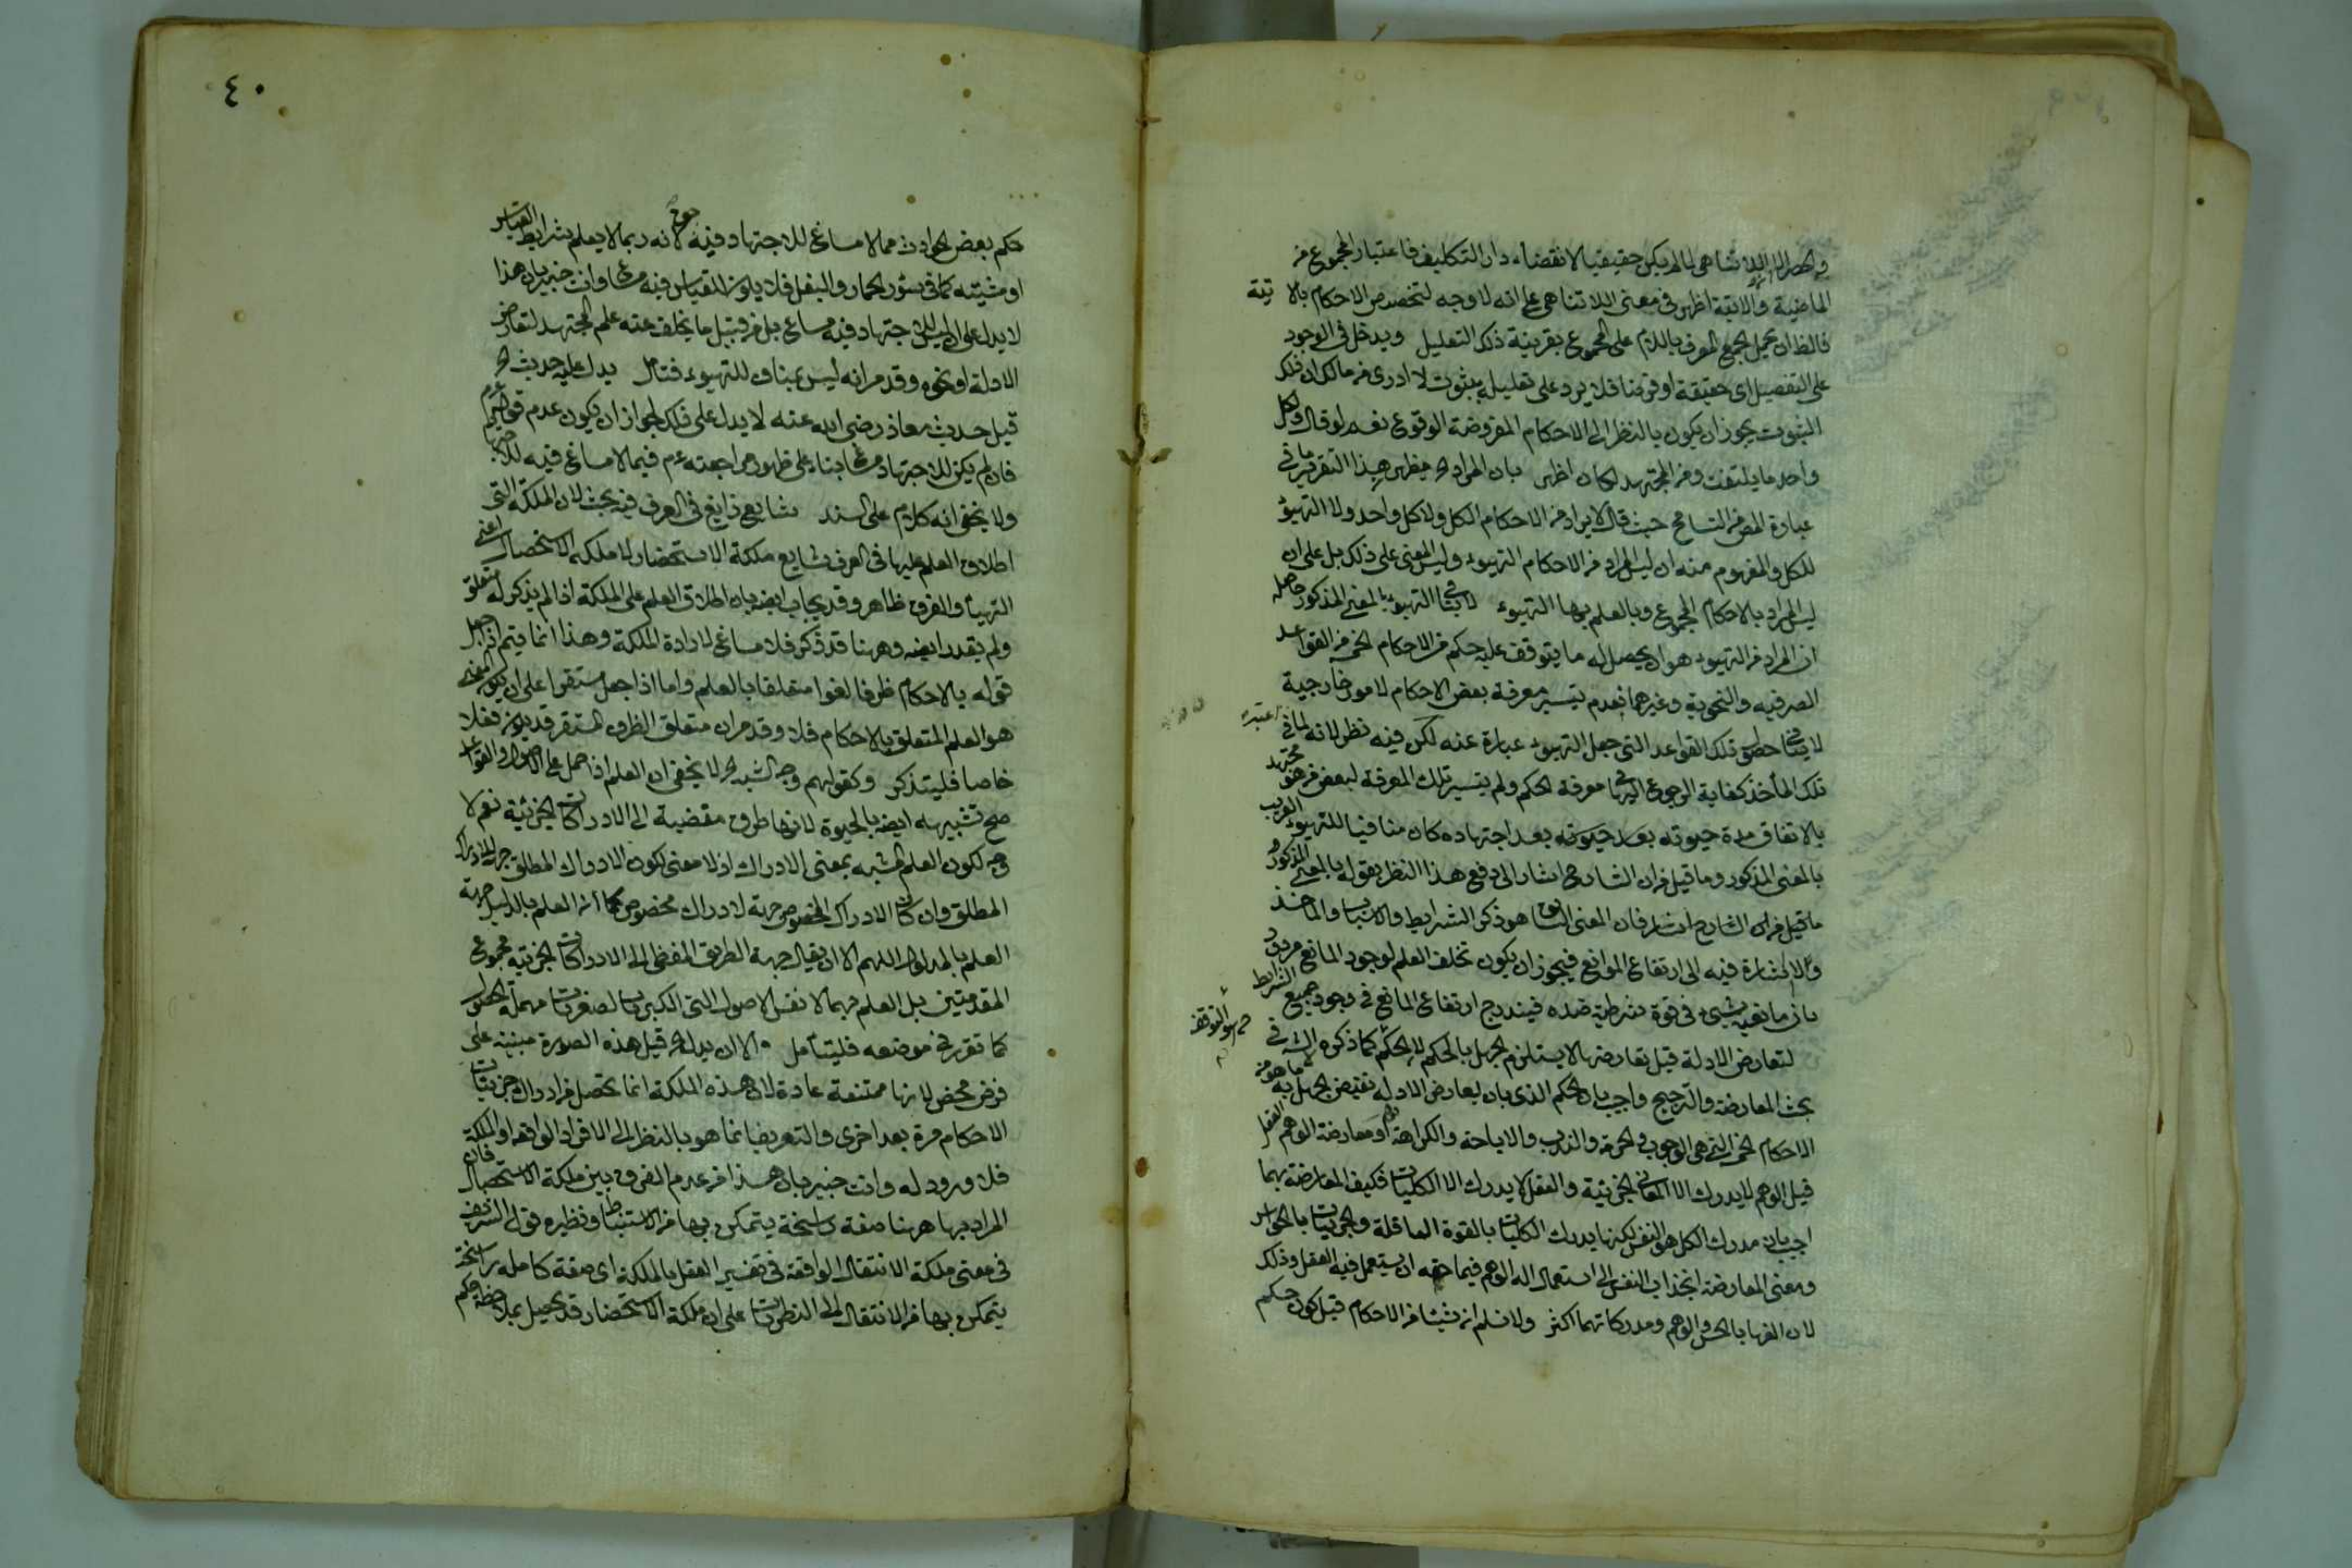 الماضية والآتية اظهر فى معنى اللاتناهى على انه لا وجه لتخصيص الاحكام بالآ تية
فالظ ان يحمل الجمع المعرف باللام على المجموع بقرينة ذلك التعليل ويدخل فى الوجود
على التفصيل اى حقيقة او فرضا فلا يرد على تعليله بثبوت لا ادرى من مالك ان ذلك
الثبوت يجوز ان يكون بالنظر الى الاحكام المفروضة الوقوع نعم لو قال وكل
واحد مما يلتفت ومن المجتهد لكان اظهر بان المراد الخ يظهر بهذا التقرير ما فى
عبارة المص من التسامح حيث قال لا يراد من الاحكام الكل ولا كل واحد ولا التهيؤ
للكل والمفهوم منه ان ليس المراد من الاحكام التهيوء وليس المعنى على ذلك بل على ان
ليس المراد بالاحكام المجموع وبالعلم بها التهيوء لا ينافى التهيوء بالمعنى المذكور حاصله
ان المراد من التهيوء هو ان يحصل له ما يتوقف عليه حكم من الاحكام الخ من القواعد
الصرفيه والنحوية وغيرهما فعدم تيسير معرفة بعض الاحكام لامور خارجية
لا ينافى حصول تلك القواعد التى جعل التهيوء عبارة عنه لكن فيه نظر لانه لما اعتبر فى
تلك المأخذ كفاية الرجوع اليها فى معرفة الحكم ولم يتيسر تلك المعرفة لبعض من هو مجتهد
بالاتفاق مدة حيوته بعد اجتهاده كان منافيا للتهيوء القريب
بالمعنى المذكور وما قيل من ان الشارح اشار الى دفع هذا النظر بقوله بالمعنى المذكور
ما قيل من ان الشارح اشار فان المعنى السابق هو ذكر الشرايط والاسباب والمآخذ
ولا اشارة فيه الى ارتفاع الموانع فيجوز ان يكون تخلف العلم لوجود المانع مردود
بان مانعية شىء فى قوة شرطية ضده فيندرج ارتفاع المانع فى وجود جميع الشرايط
لتعارض الادلة قيل تعارضها لا يستلزم الجهل بالحكم لان الحكم كما ذكره الش فى
بحث المعارضة والترجيح واجيب بان الحكم الذى بان لعارض الادلة يقتضى الجهل به ما هو من
الاحكام الخ التى هى الوجوب والحرمة والندب والاباحة والكراهة او معارضة الوهم العقل
قيل الوهم لا يدرك الا المعانى الجزئية والعقل لا يدرك الا الكليات فكيف المعارضة بهما
اجيب بان مدرك الكل هو النفس لكنها يدرك الكليات بالقوة العاقلة والجزئيات بالحواس
ومعنى المعارضة انجذاب النفس الى استعمال اله الوهم فيما حقه ان يستعمل فيه العقل وذلك
لان الفها بالحس والوهم ومدركاتهما اكثر ولا نسلم ان شيئا من الاحكام قيل كون حكم
٤٠
حكم بعض الحوادث مما لا مساغ للاجتهاد فيه لانه ربما لا يعلم بشرايط القياس
او مثبته كما فى سؤر الحمار والبغل فلا يكون للقياس فيه مساغا وانت خبير بان هذا
لا يدل على ان ليس للاجتهاد فيه مساغ بل من قبيل ما يخلف عنه علم المجتهد لتعارض
الادلة او نحوه وقد مر انه ليس بمناف للتهيوء فتأمل يدل عليه حديث الخ
قيل حديث معاذ رضى الله عنه لا يدل على ذلك لجواز ان يكون عدم قوله عم
فان لم يكن للاجتهاد مساغا بناء على ظهور مراجعته عم فيما لا مساغ فيه للاجتهاد
ولا يخفى انه كلام على السند شايع ذايع فى العرف فيه بحث لان الملكة التى
اطلاق العلم عليها فى العرف شايع ملكة الاستحضار لا ملكة الاستحصال اعنى
التهيأ والفرق ظاهر وقد يجاب ايضه بان اطلاق العلم على الملكة اذا لم يذكر له متعلق
ولم يقدر ايضه وههنا قد ذكر فلا مساغ لارادة الملكة وهذا انما يتم اذا جعل
قوله بالاحكام ظرفا لغوا متعلقا بالعلم واما اذا جعل مستقرا على ان يكون المعنى
هو العلم المتعلق بالاحكام فلا وقد مر ان متعلق الظرف المستقر قد يكون فعلا
خاصا فليتذكر وكقولهم وجه الشبه الخ لا يخفى ان العلم اذا حمل على الاصول والقواعد
صح تشبيهه ايضه بالحيوة لانها طرق مفضية الى الادراكات الجزئية نعم لا
وجه لكون العلم المشبه بمعنى الادراك اذ لا معنى لكون الادراك المطلق جهة للادراك
المطلق وان كان الادراك المخصوص جهة لادراك مخصوص كما ان العلم بالدليل جهة
العلم بالمدلول اللهم الا ان يقال جهة الطريق المفضى الى الادراكات الجزئية مجموع
المقدمتين بل العلم بهما لا نفس الاصول التى الكبريات لصغريات مهملة الحصول
كما تقرر فى موضعه فليتأمل والا ان يدل الخ قيل هذه الصورة مبنيه على
فرض محض لانها ممتنعة عادة لان هذه الملكة انما تحصل من ادراك جزئيات
الاحكام مرة بعد اخرى والتعريف انما هو بالنظر الى الافراد الواقعه او الملكة
فلا ورود له وانت خبير بان هذا من عدم الفرق بين ملكة الاستحصال فان
المراد بها ههنا صفة راسخة يتمكن بها من الاستنباط ونظيره قول الشريف
فى معنى ملكة الانتقال الواقعة فى تفسير العقل بالملكة اى صفة كاملة راسخة
يتمكن بها من الانتقال الى النظريات على ان ملكة الاستحضار قد يحصل بملاحظة حكم